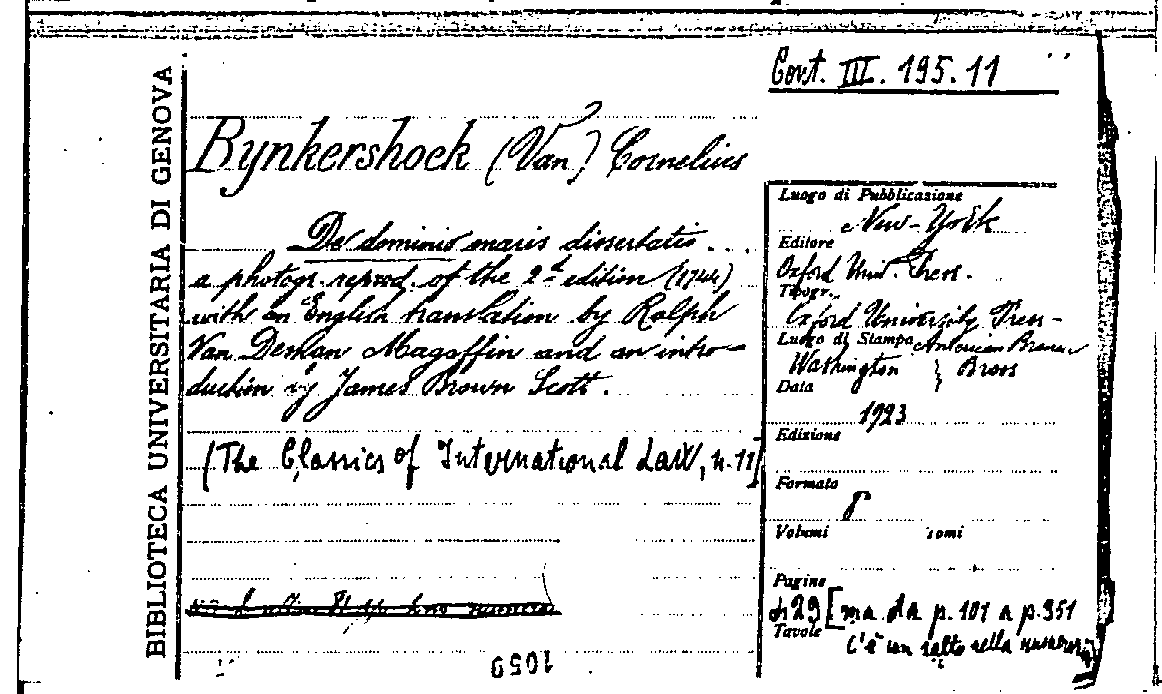 BIBLIOTECA UNIVERSITARIA DI GENOVA
Cort. III. 195.11
Bynkershoek (Van) Cornelius
De dominio maris dissertatio...
a photogr. reprod. of the 2d edition (1744)
with an English translation by Ralph
Van Deman Magoffin and an intro-
duction by James Brown Scott.
(The Classics of International Law, n. 11)
Luogo di Pubblicazione
New-York
Editore
Oxford Univ. Press.
Tipogr.
Oxford University Press-
Luogo di Stampa American Branch
Washington
Data
1923
Edizione
Formato
8°
Volumi tomi
Pagine
429 [ma da p. 107 a p. 351
Tavole
c'è un salto nella numeraz.]
1050